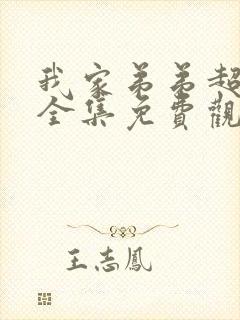 我家弟弟超
全集免費觀
王志鳳